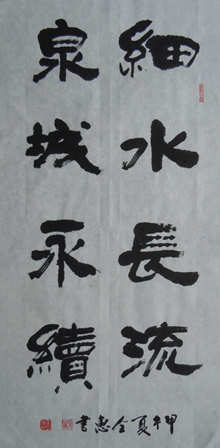 細水長流
泉城永續
甲午夏全惠書